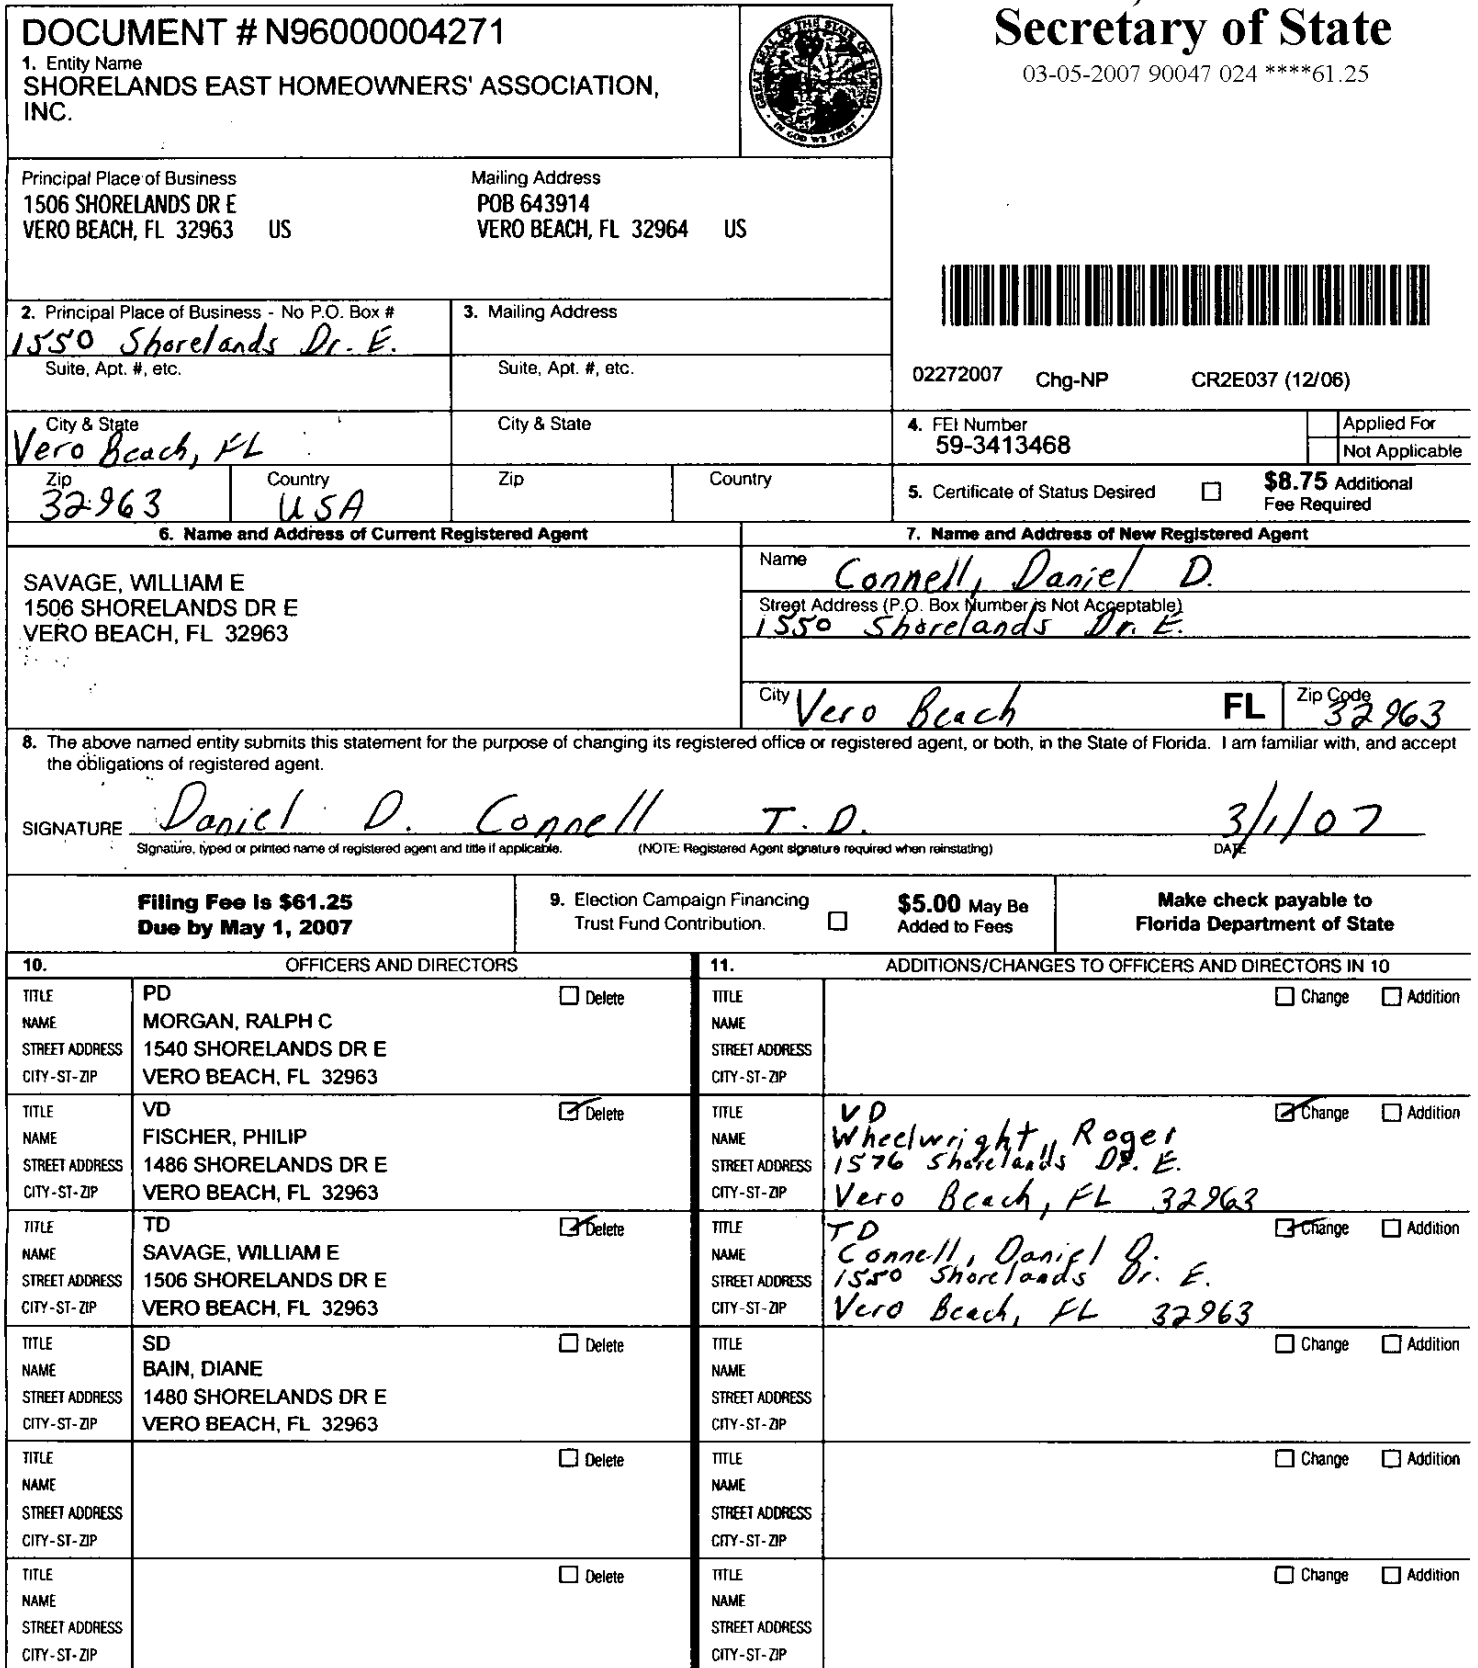 DOCUMENT # N96000004271
1. Entity Name
SHORELANDS EAST HOMEOWNERS' ASSOCIATION,
INC.
GREAT SEAL OF THE STATE OF FLORIDA
IN GOD WE TRUST
Secretary of State
03-05-2007 90047 024 ****61.25
Principal Place of Business
1506 SHORELANDS DR E
VERO BEACH, FL 32963 US
Mailing Address
POB 643914
VERO BEACH, FL 32964 US
2. Principal Place of Business - No P.O. Box #
1550 Shorelands Dr. E.
Suite, Apt. #, etc.
City & State
Vero Beach, FL
Zip
32963
Country
USA
3. Mailing Address
Suite, Apt. #, etc.
City & State
Zip
Country
02272007 Chg-NP CR2E037 (12/06)
4. FEI Number
59-3413468
Applied For
Not Applicable
5. Certificate of Status Desired
$8.75 Additional
Fee Required
6. Name and Address of Current Registered Agent
SAVAGE, WILLIAM E
1506 SHORELANDS DR E
VERO BEACH, FL 32963
7. Name and Address of New Registered Agent
Name Connell, Daniel D.
Street Address (P.O. Box Number is Not Acceptable)
1550 Shorelands Dr. E.
City Vero Beach FL Zip Code 32963
8. The above named entity submits this statement for the purpose of changing its registered office or registered agent, or both, in the State of Florida. I am familiar with, and accept
the obligations of registered agent.
SIGNATURE Daniel D. Connell T.D. 3/1/07
Signature, typed or printed name of registered agent and title if applicable. (NOTE: Registered Agent signature required when reinstating) DATE
Filing Fee is $61.25
Due by May 1, 2007
9. Election Campaign Financing
Trust Fund Contribution.
$5.00 May Be
Added to Fees
Make check payable to
Florida Department of State
10. OFFICERS AND DIRECTORS
TITLE PD Delete
NAME MORGAN, RALPH C
STREET ADDRESS 1540 SHORELANDS DR E
CITY-ST-ZIP VERO BEACH, FL 32963
TITLE VD Delete
NAME FISCHER, PHILIP
STREET ADDRESS 1486 SHORELANDS DR E
CITY-ST-ZIP VERO BEACH, FL 32963
TITLE TD Delete
NAME SAVAGE, WILLIAM E
STREET ADDRESS 1506 SHORELANDS DR E
CITY-ST-ZIP VERO BEACH, FL 32963
TITLE SD Delete
NAME BAIN, DIANE
STREET ADDRESS 1480 SHORELANDS DR E
CITY-ST-ZIP VERO BEACH, FL 32963
TITLE Delete
NAME
STREET ADDRESS
CITY-ST-ZIP
TITLE Delete
NAME
STREET ADDRESS
CITY-ST-ZIP
11. ADDITIONS/CHANGES TO OFFICERS AND DIRECTORS IN 10
TITLE Change Addition
NAME
STREET ADDRESS
CITY-ST-ZIP
TITLE VD Change Addition
NAME Wheelwright, Roger
STREET ADDRESS 1576 Shorelands Dr. E.
CITY-ST-ZIP Vero Beach, FL 32963
TITLE TD Change Addition
NAME Connell, Daniel D.
STREET ADDRESS 1550 Shorelands Dr. E.
CITY-ST-ZIP Vero Beach, FL 32963
TITLE Change Addition
NAME
STREET ADDRESS
CITY-ST-ZIP
TITLE Change Addition
NAME
STREET ADDRESS
CITY-ST-ZIP
TITLE Change Addition
NAME
STREET ADDRESS
CITY-ST-ZIP